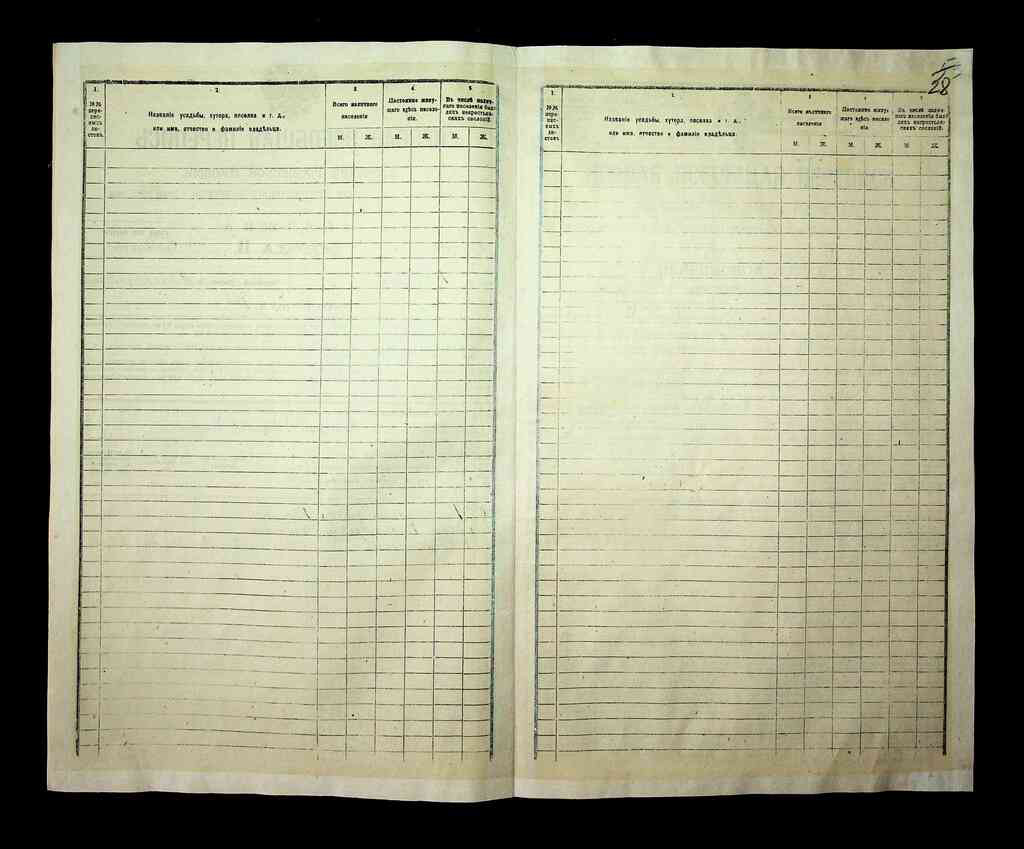 28
1. 2. 3. 4. 5.
№№ переписныхъ листовъ.
Названіе усадьбы, хутора, поселка и т. д.,
или имя, отчество и фамилія владѣльца.
Всего наличнаго
населенія
Постоянно живущаго здѣсь населенія.
Въ числѣ наличнаго населенія было лицъ некрестьянскихъ сословій.
М. Ж. М. Ж. М. Ж.
1. 2. 3
№№ переписныхъ листовъ.
Названіе усадьбы, хутора, поселка и т. д.,
или имя, отчество и фамилія владѣльца.
Всего наличнаго
населенія
Постоянно живущаго здѣсь населенія
Въ числѣ наличнаго населенія было лицъ некрестьянскихъ сословій.
М. Ж. М. Ж. М. Ж.